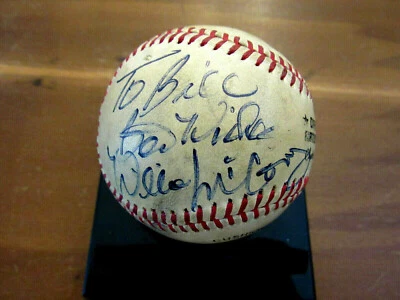 To Bill
Best Wishes
Willie McCovey
CUSH